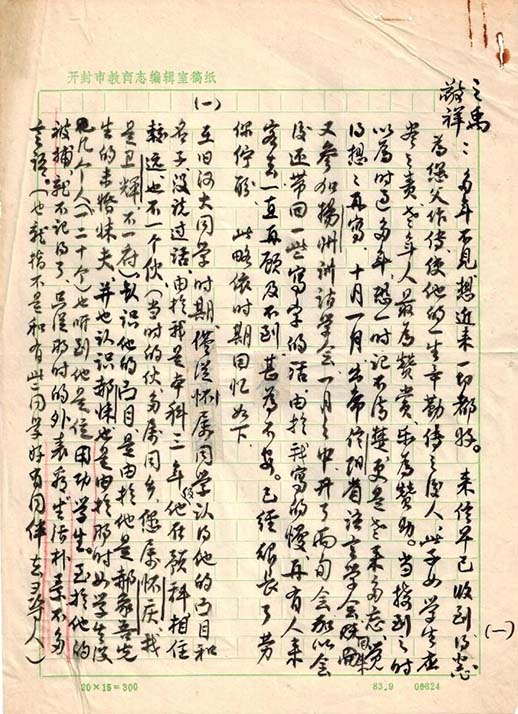 开封市教育志编辑室稿纸
(一)
之禹
敬祥：多年不见想近来一切都好。来信早已收到得悉
为您父作传使他的一生辛勤传之后人，此子女学生应
尽之责老年人最为赞赏，乐为赞助。当接到之时
以为时过多年，恐一时记不清楚更是老来多忘，觉
得想想再写，十月一月出席信阳省语言学会
又参加扬州训诂学会一月之中开了两旬会加以会
后还带回一些写字的活由于我写的慢再有人来
客去一直再顾及不到，甚为不安。已经很长了劳
你伫盼，此略依时期回忆如下
(一)
在旧河大同学时期，仅从怀属同学认得他的面目和
名子没说过话，由于我是本科三年级他在预科相住
较远也不一个伙（当时的伙多属同乡，您属怀庆，我
是卫辉不一府）认识他的面目是由于他是郝
生的未婚妹夫，并也认识郝妹也是由于那时女学生没
几个人（一二十个）也听到他是位用功学生。至于他的
被捕就不记得了，只从那时的外表看，生活朴素不多
言语。（也就指不是和有些同学好有同伴
20×15=300
83.9